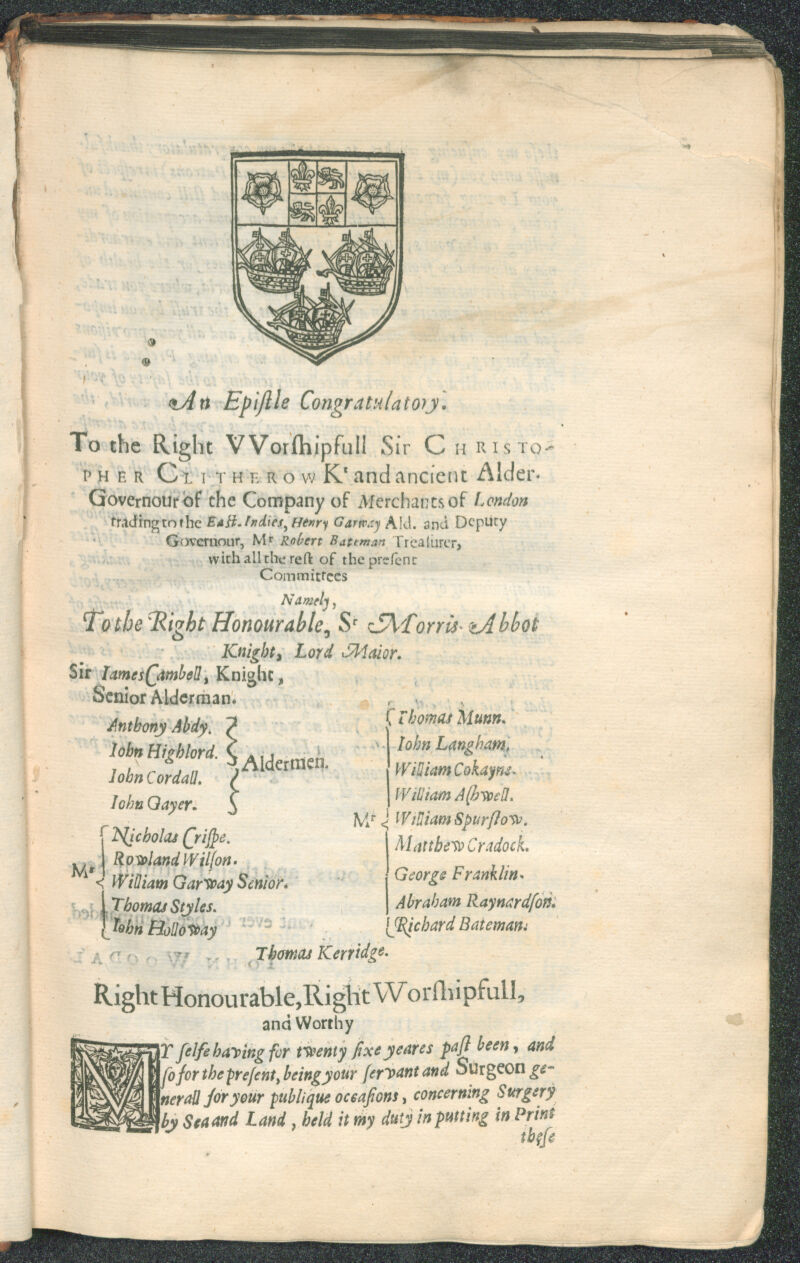 An Epiſtle Congratulatory.
To the Right VVorſhipfull Sir CHRISTO-
PHER CLITHEROW Kᵗ and ancient Alder.
Governour of the Company of Merchants of London
trading to the Eaſt-Indies, Henry Garway Ald. and Deputy
Governour, Mʳ Robert Bateman Treaſurer,
with all the reſt of the preſent
Committees
Namely,
To the Right Honourable, Sʳ Morris Abbot
Knight, Lord Maior.
Sir Iames Cambell, Knight,
Senior Alderman.
Anthony Abdy.
Iohn Highlord.
Iohn Cordall.
Iohn Gayer.
Aldermen.
Mʳ
Nicholas Criſpe.
Rowland Wilſon.
William Garway Senior.
Thomas Styles.
Iohn Holloway
Mʳ
Thomas Munn.
Iohn Langham.
William Cokayne.
William Aſhwell.
William Spurſtow.
Matthew Cradock.
George Franklin.
Abraham Raynardſon.
Richard Bateman.
Thomas Kerridge.
Right Honourable, Right Worſhipfull,
and Worthy
MY ſelfe having for twenty ſixe yeares paſt been, and
ſo for the preſent, being your ſervant and Surgeon ge-
nerall for your publique occaſions, concerning Surgery
by Sea and Land, held it my duty in putting in Print
theſe